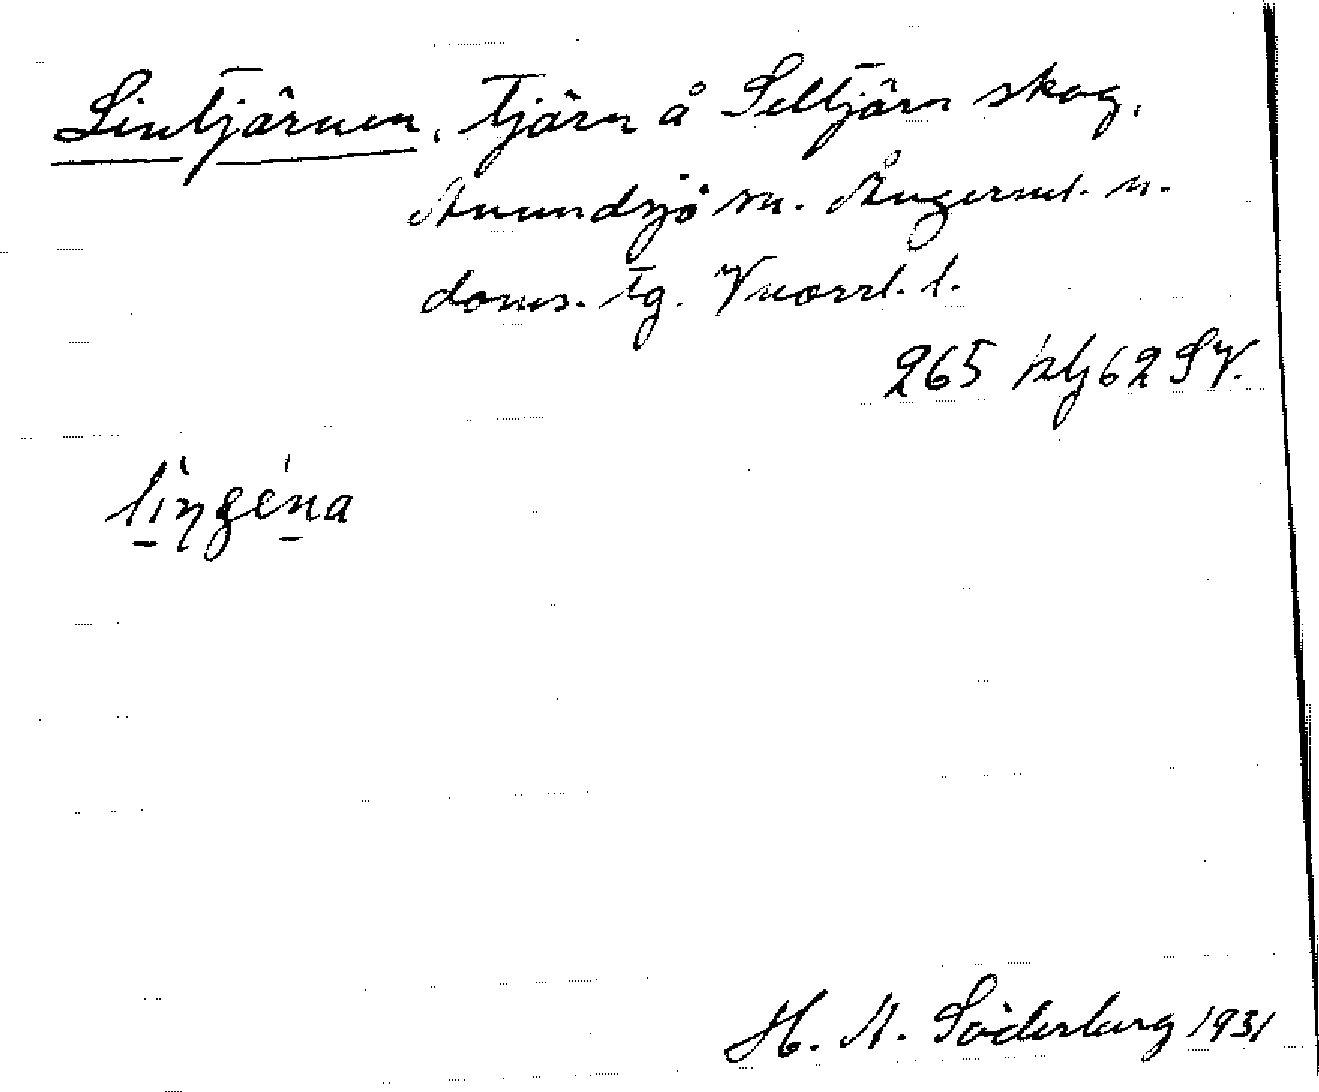 Lintjärnen. Tjärn å Seltjärn skog,
Anundsjö sn. Ångerml. n.
doms. tg. Vnorrl. l.
265 klj 62 SV.
H. A. Söderberg 1931